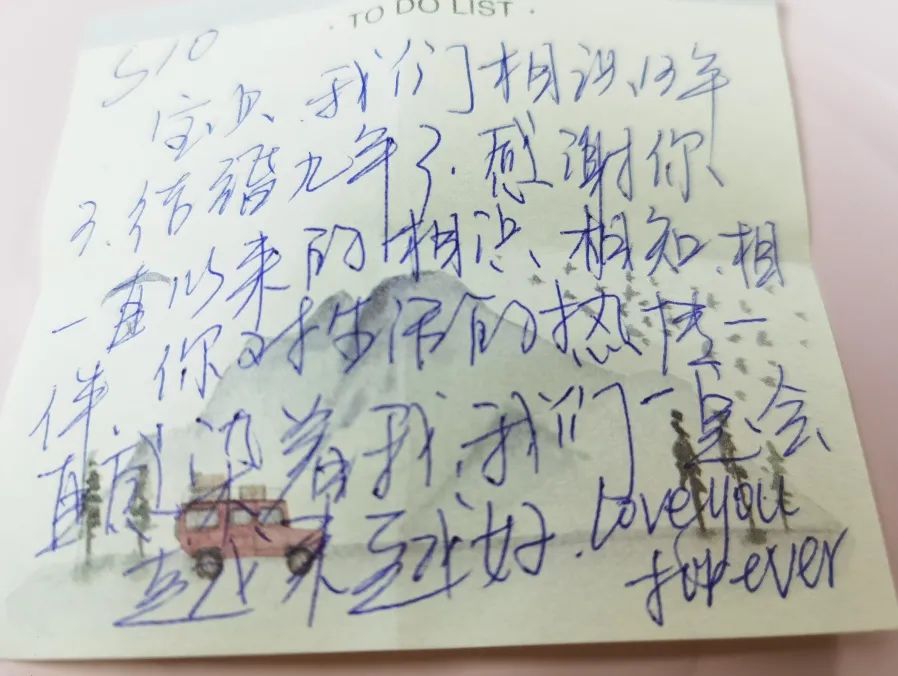 · TO DO LIST ·
510
宝贝、我们相识13年
了.结婚九年了.感谢你
一直以来的相识、相知、相
伴、你对生活的热情一
直感染着我,我们一定会
越来越好.Love you
forever